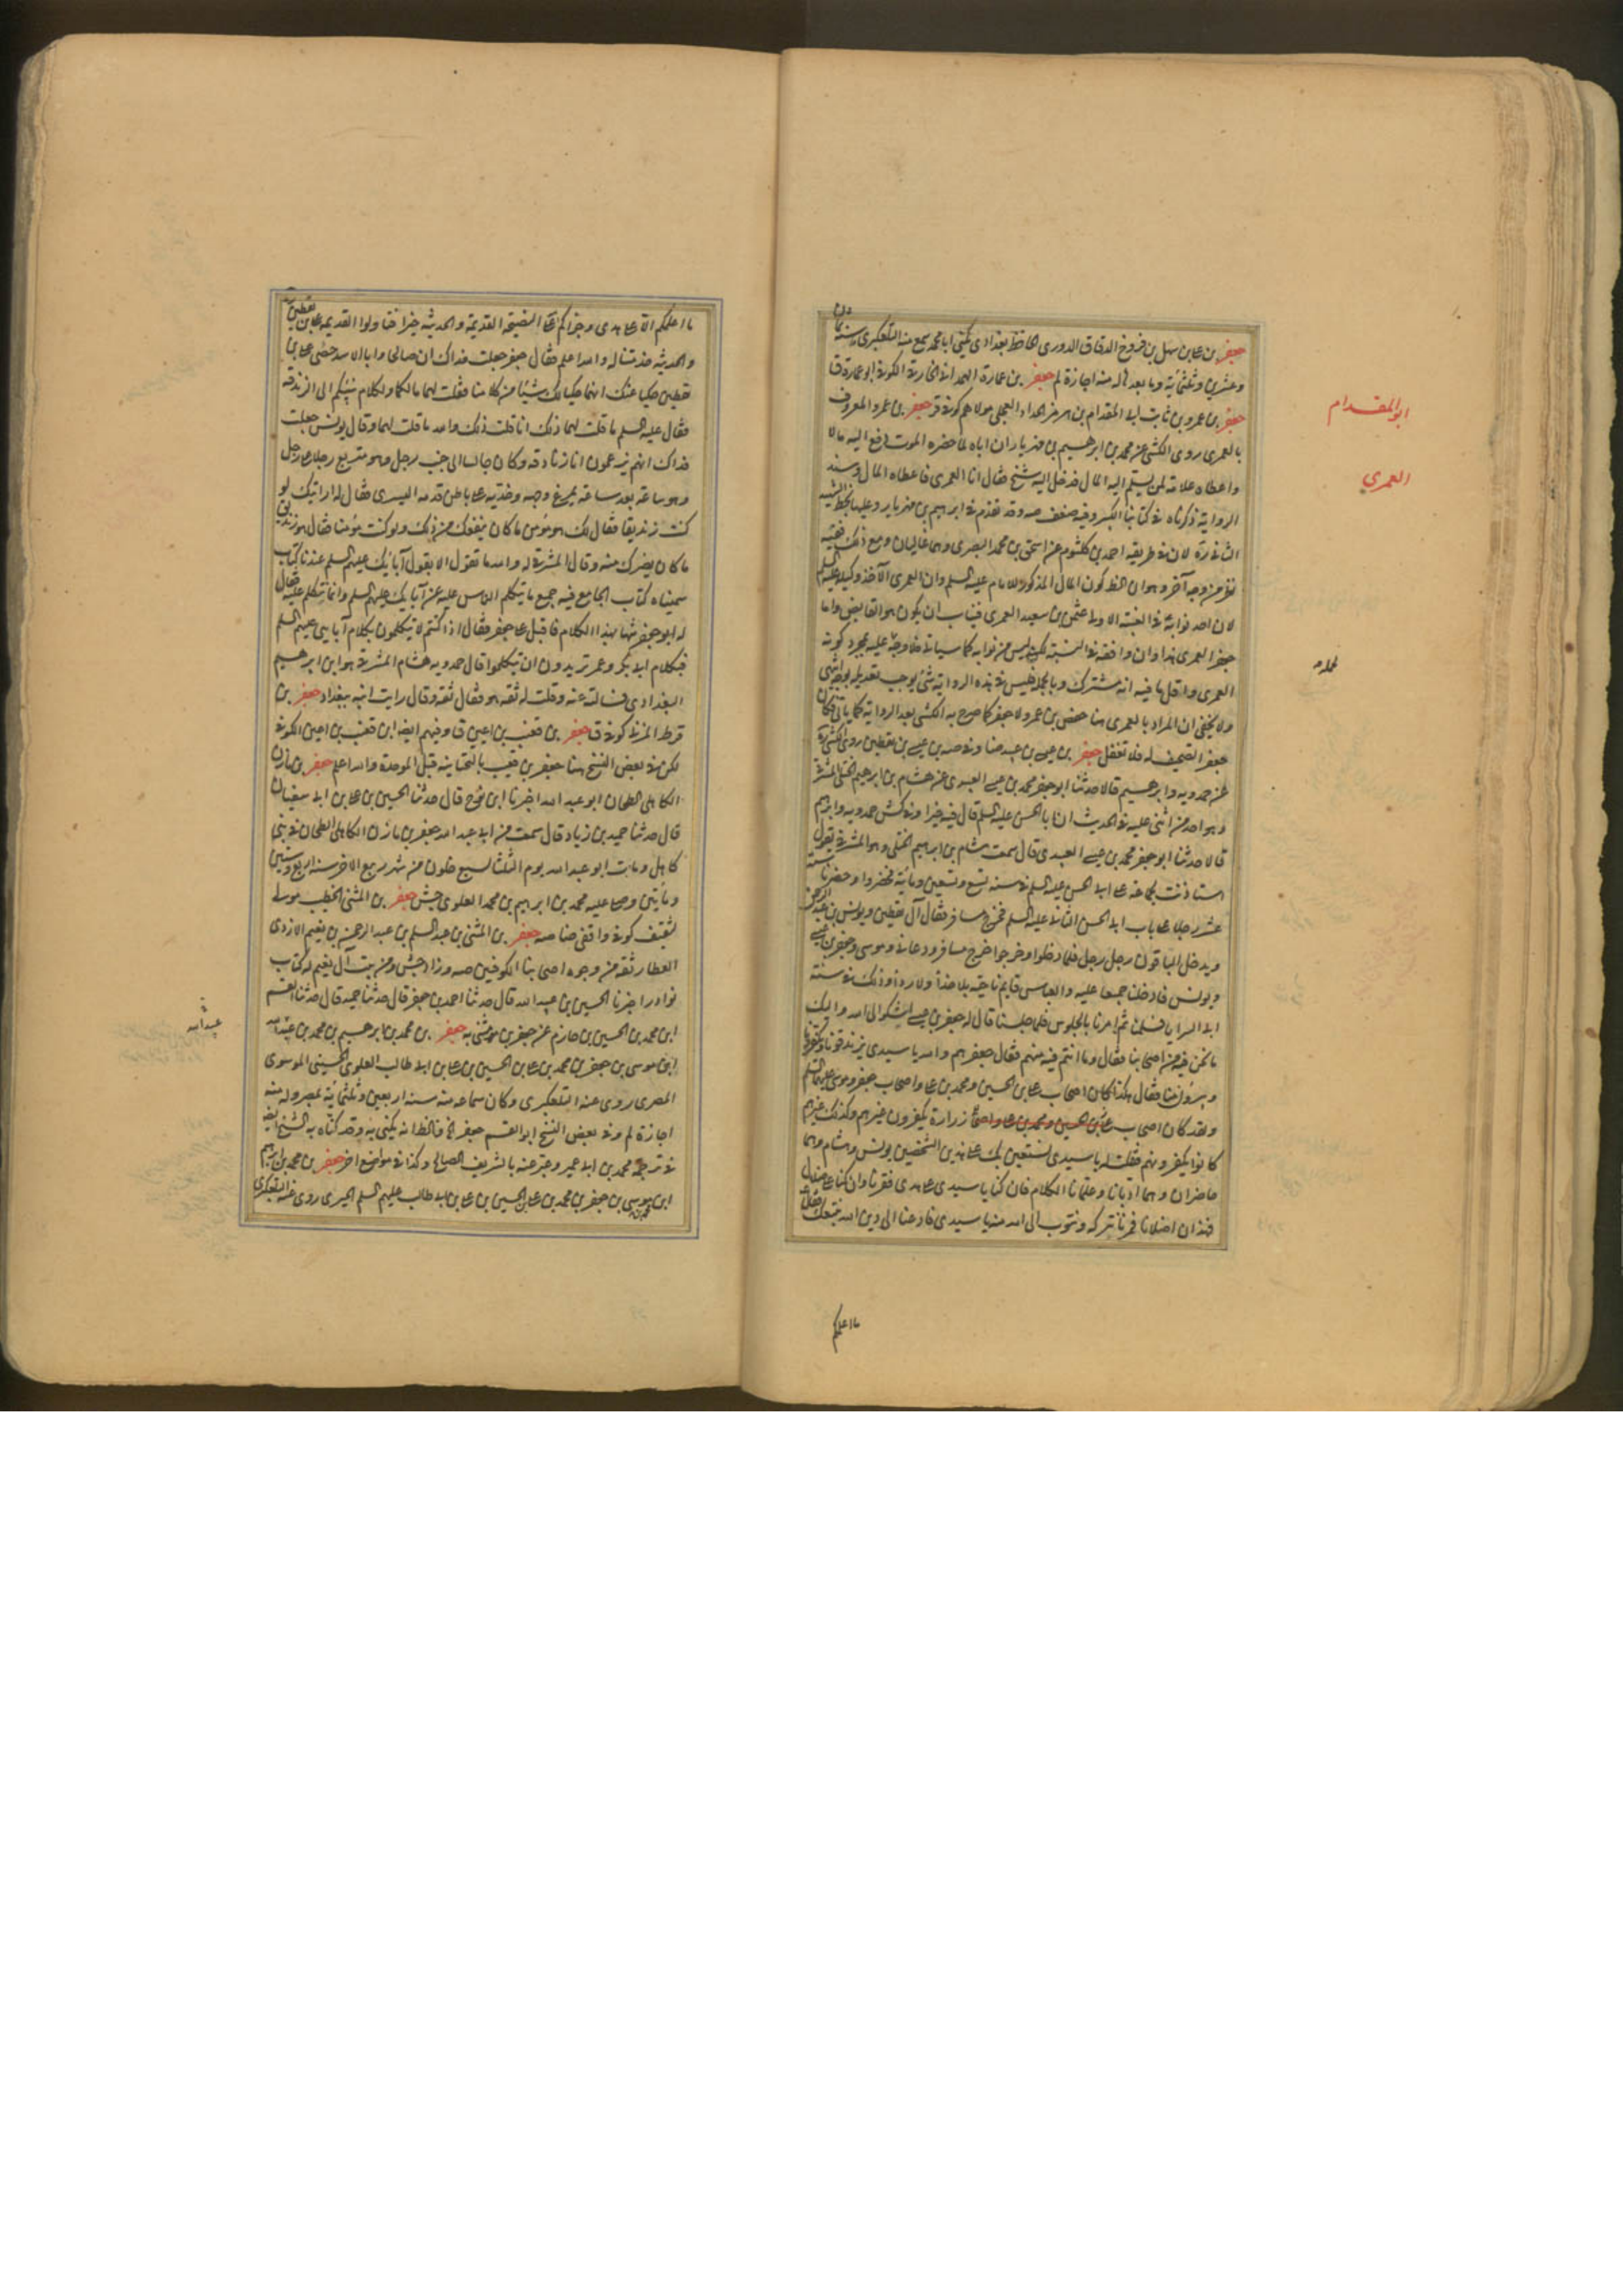 جعفر بن علي بن سهل بن فروخ الدقاق الدوري الحافظ بغدادي يكنى ابا محمد سمع منه التلعكبري سنة ثمان
وعشرين وثلثمائة وما بعدها وله منه اجازة لم جعفر بن عمارة الهمداني الخارقي الكوفي ابو عمارة ق
جعفر بن عمرو بن ثابت ابي المقدام بن هرمز الحداد العجلي مولاهم كوفي ق جعفر بن عمرو المعروف
بالعمري روى الكشي عن محمد بن ابرهيم بن مهزيار ان اباه لما حضره الموت دفع اليه مالا
واعطاه علامة لمن يسلم اليه المال فدخل اليه شيخ فقال انا العمري فاعطاه المال وسند
الرواية ذكرناه في كتابنا الكبير وفيه ضعف صه وقد تقدم في ابرهيم بن مهزيار
لان في طريقه احمد بن كلثوم عن اسحق بن محمد البصري وهما غاليان ومع ذلك ففيه
نظر من وجه آخر وهو ان الظ كون المال المذكور للامام عليه السلم وان العمري الآخذ وكيله عليه السلم
لان احد نوابه في الغيبة الاولى عثمن بن سعيد العمري فيناسب ان يكون هو القابض واما
جعفر العمري هذا وان وافقه في النسبة لكن ليس من نوابه كما سيأتي فلا وجه عليه بمجرد كونه
العمري واقل ما فيه انه مشترك وبالجملة فليس في هذه الرواية شئ يوجب تعديله بوجه انتهى
ولا يخفى ان المراد بالعمري هنا حفص بن عمرو لا جعفر كما صرح به الكشي بعد الرواية كما يأتي فكان
جعفر تصحيف له فلا تغفل جعفر بن عيسى بن عبيد ضا وفي صه بن عيسى بن يقطين روى الكشي
عن حمدويه وابرهيم قالا حدثنا ابو جعفر محمد بن عيسى العبيدي عن هشام بن ابرهيم الختلي المشرقي
وهو احد من اثنى عليه في الحديث ان ابا الحسن عليه السلم قال فيه خيرا وفي كش حمدويه وابرهيم
قالا حدثنا ابو جعفر محمد بن عيسى العبيدي قال سمعت هشام بن ابرهيم الختلي وهو المشرقي يقول
استاذنت لجماعة على ابي الحسن عليه السلم في سنة تسع وتسعين ومائة فحضروا وحضرنا ستة
عشر رجلا على باب ابي الحسن الثاني عليه السلم فخرج مسافر فقال آل يقطين ويونس بن عبد الرحمن
ويدخل الباقون رجل رجل فلما دخلوا وخرجوا خرج مسافر ودعاني وموسى وجعفر بن عيسى
ويونس فادخلنا جميعا عليه والعباس قايم ناحية بلا حذاء ولا رداء وذلك في سنة
ابي السرايا فسلمنا ثم امرنا بالجلوس فلما جلسنا قال له جعفر بن عيسى اشكو الى الله واليك
ما نحن فيه من اصحابنا فقال وما انتم فيه منهم فقال جعفر هم والله يا سيدي يزندقونا ويكفرونا
ويبرؤن منا فقال هكذا كان اصحاب علي بن الحسين ومحمد بن علي واصحاب جعفر وموسى عليهم السلم
ولقد كان اصحاب زرارة يكفرون غيرهم وكذلك غيرهم
كانوا يكفرونهم فقلت له يا سيدي نستعين بك على هذين الشيخين يونس وهشام وهما
حاضران وهما ادبانا وعلمانا الكلام فان كنا يا سيدي على هدى ففزنا وان كنا على ضلال
فهذان اضلانا فمرنا نتركه ونتوب الى الله منه يا سيدي فادعنا الى دين الله نتبعك فقال
ما اعلمكم
ابو المقدام
العمري
ما اعلمكم الا على هدى وجزاكم الله النصيحة القديمة والحديثة خيرا فتأولوا القديمة علي بن يقطين
والحديثة خدمتنا له والله اعلم فقال جعفر جعلت فداك ان صالحا وابا الاسد خصى علي بن
يقطين حكيا عنك انهما حكيا لك شيئا من كلامنا فقلت لهما ما لكما والكلام يثنيكم الى الزندقة
فقال عليه السلم ما قلت لهما ذلك انا قلت ذلك والله ما قلت لهما وقال يونس جعلت
فداك انهم يزعمون انا زنادقة وكان جالسا الى جنب رجل وهو متربع رجلا على رجل
وهو ساعة بعد ساعة يمرغ وجهه وخديه على باطن قدمه اليسرى فقال له ارايتك لو
كنت زنديقا فقال لك هو مؤمن ما كان ينفعك من ذلك ولو كنت مؤمنا فقال هو زنديق
ما كان يضرك منه وقال المشرقي له والله ما تقول الا بقول آبائك عليهم السلم عندنا كتاب
سميناه كتاب الجامع فيه جميع ما يتكلم الناس عليه عن آبائك عليهم السلم وانما نتكلم عليه فقال
له ابو جعفر شبها بهذا الكلام فاقبل على جعفر فقال اذا كنتم لا تتكلمون بكلام آبايي عليهم السلم
فبكلام ابي بكر وعمر تريدون ان تتكلموا قال حمدويه هشام المشرقي هو ابن ابرهيم
البغدادي فسالته عنه وقلت له ثقة هو فقال ثقة وقال رايت ابنه ببغداد جعفر بن
قرط المزني كوفي ق جعفر بن قعنب بن اعين ق وفيهم ايضا ابن قعنب بن اعين الكوفي
لكن في بعض النسخ هنا جعفر بن قعيب بالتحتانية قبل الموحدة والله اعلم جعفر بن مازن
الكاهلي الطحان ابو عبد الله اخبرنا ابن نوح قال حدثنا الحسين بن علي بن ابي سفيان
قال حدثنا حميد بن زياد قال سمعت من ابي عبد الله جعفر بن مازن الكاهلي الطحان في بني
كاهل ومات ابو عبد الله يوم الثلثا لسبع خلون من شهر ربيع الاخر سنة اربع وستين
ومأتين وصلى عليه محمد بن ابرهيم بن محمد العلوي جش جعفر بن المثنى الخطيب مولى
لثقيف كوفي واقفي ضا صه جعفر بن المثنى بن عبد السلم بن عبد الرحمن بن نعيم الازدي
العطار ثقة من وجوه اصحابنا الكوفيين صه وزاد جش ومن بيت آل نعيم له كتاب
نوادر اخبرنا الحسين بن عبيد الله قال حدثنا احمد بن جعفر قال حدثنا حميد قال حدثنا القسم
ابن محمد بن الحسين بن حازم عن جعفر بن مثنى به جعفر بن محمد بن ابرهيم بن محمد بن عبيد الله
ابن موسى بن جعفر بن محمد بن علي بن الحسين بن علي بن ابي طالب العلوي الحسيني الموسوي
المصري روى عنه التلعكبري وكان سماعه منه سنة اربعين وثلثمائة بمصر وله منه
اجازة لم وفي بعض النسخ ابو القسم جعفر الخ فالظ انه يكنى به وقد كناه به الشيخ ايضا
في ترجمة محمد بن ابي عمير وعبر عنه بالشريف الصالح وكذا في مواضع اخر جعفر بن محمد بن ابرهيم
ابن موسى بن جعفر بن محمد بن علي بن الحسين بن علي بن ابي طالب عليهم السلم الحيري روى عنه التلعكبري
عبد الله